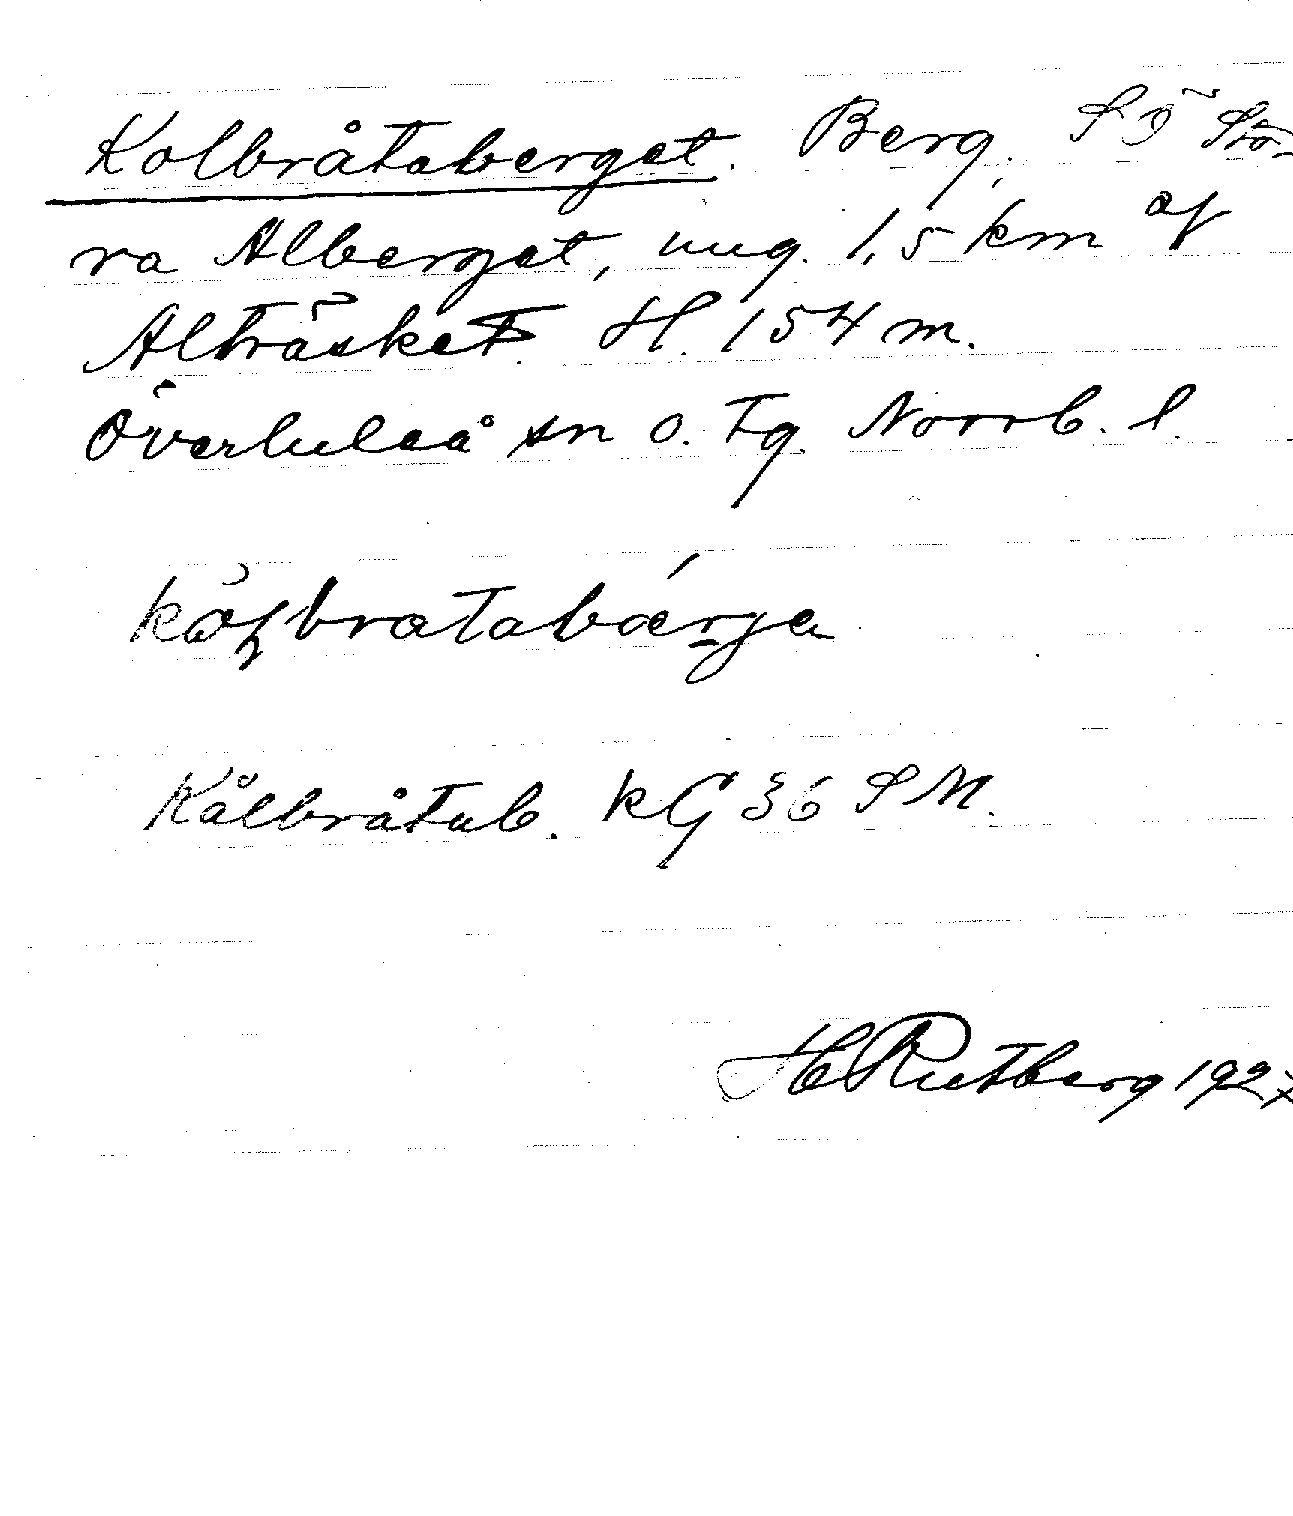 Kolbråtaberget. Berg, SÖ Sto-
ra Alberget, ung. 1,5 km af
Alträsket. H. 154 m.
Överluleå sn o. tg. Norrb. l.
Kålbråtab. KG 36 SM.
H Rutberg 1927